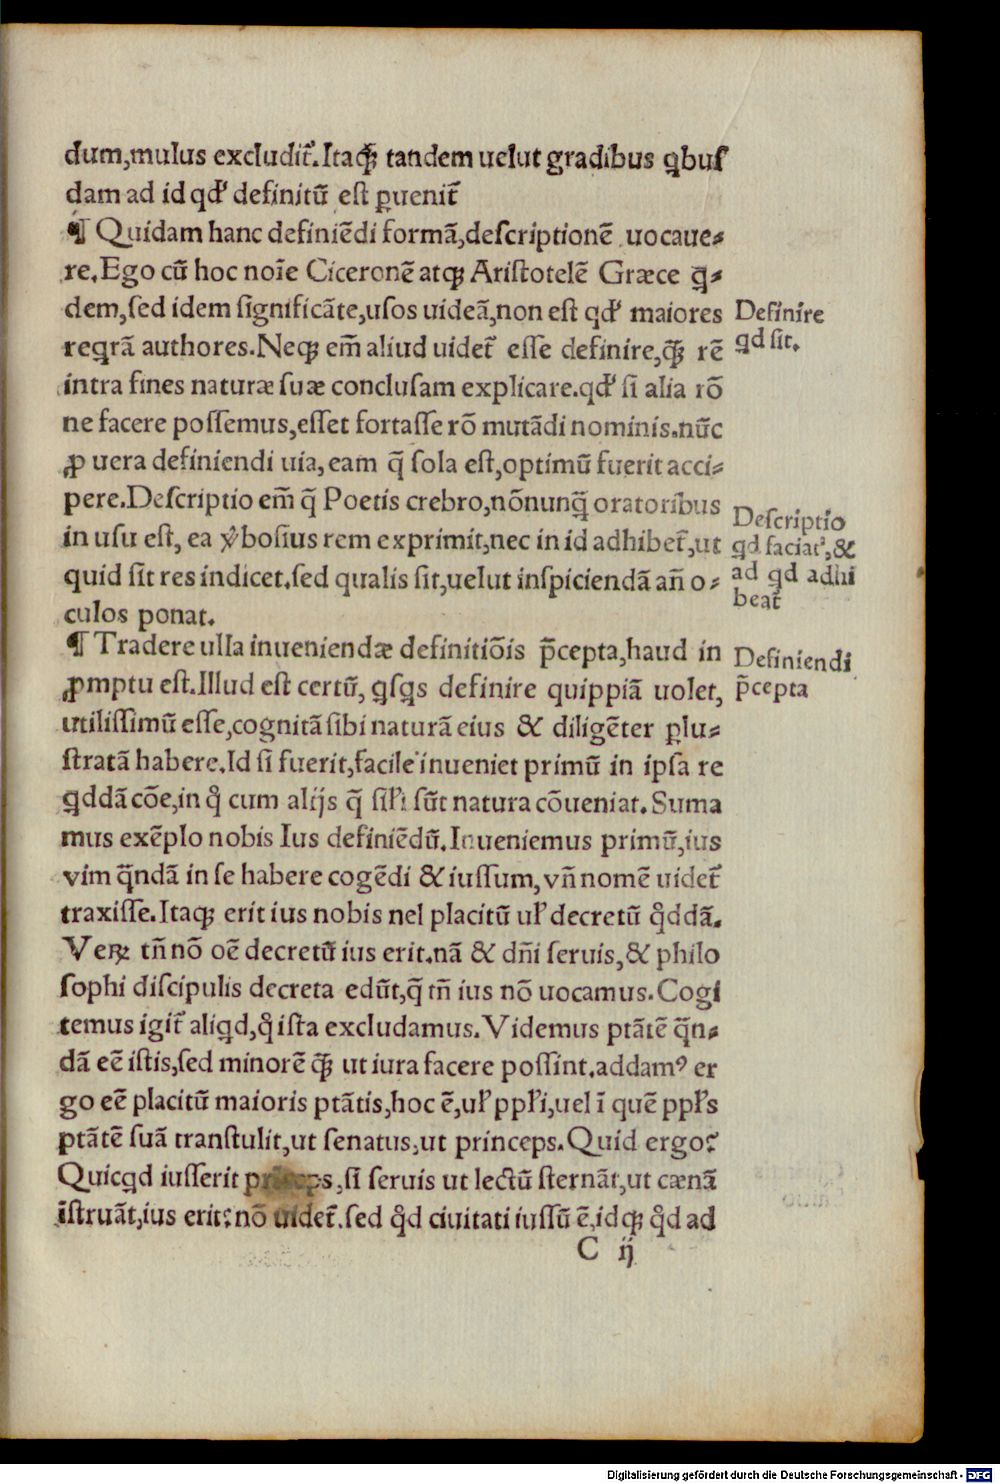 dum,mulus excludit᷒.Itaqꝫ tandem uelut gradibus qbuſ
dam ad id qď definitū est ꝑuenit᷒
¶ Quidam hanc definiēdi formā,deſcriptionē uocaue⸗
re.Ego cū hoc noīe Ciceronē atqꝫ Ariſtotelē Græce q̇⸗
dem,ſed idem ſignificāte,uſos uideā,non eſt qď maiores
reqrā authores.Neqꝫ em̄ aliud uidet᷒ eſſe definire,q̄ꝫ rē
intra fines naturæ ſuæ concluſam explicare.qď ſi alia rō
ne facere poſſemus,eſſet fortaſſe rō mutādi nominis.nūc
ꝓ uera definiendi uia,eam q̄ ſola eſt,optimū fuerit acci⸗
pere.Deſcriptio em̄ q̄ Poetis crebro,nōnunq̄ oratoribus
in uſu eſt, ea ꝟboſius rem exprimit,nec in id adhibet᷒,ut
quid ſit res indicet.ſed qualis ſit,uelut inſpiciendā an̄ o⸗
culos ponat.
¶ Tradere ulla inueniendæ definitiōis p̄cepta,haud in
ꝓmptu eſt.Illud eſt certū, qſqs definire quippiā uolet,
utiliſſimū eſſe,cognitā ſibi naturā eius & diligēter ꝑlu⸗
ſtratā habere.Id ſi fuerit,facile inueniet primū in ipſa re
qddā cōe,in qͦ cum alijs q̄ ſiľi ſūt natura cōueniat.Suma
mus exēplo nobis Ius definiēdū.Inueniemus primū,ius
vim q̄ndā in ſe habere cogēdi & iuſſum,vn̄ nomē uidet᷒
traxiſſe.Itaqꝫ erit ius nobis nel placitū uľ decretū qͦddā.
Veꝝ tn̄ nō oē decretū ius erit.nā & dn̄i ſeruis,& philo
ſophi diſcipulis decreta edūt,q̄ tn̄ ius nō uocamus.Cogi
temus igit᷒ aliqd,qͦ iſta excludamus.Videmus ptātē q̄n⸗
dā eē iſtis,ſed minorē q̄ꝫ ut iura facere poſſint.addamꝰ er
go eē placitū maioris ptātis,hoc ē,uľ ppľi,uel ī quē ppľs
ptātē ſuā tranſtulit,ut ſenatus,ut princeps.Quid ergo?
Quicqd iuſſerit princeps,ſi ſeruis ut lectū ſternāt,ut cænā
īſtruāt,ius erit?nō uidet᷒.ſed qͦd ciuitati iuſſū ē,idqꝫ qͦd ad
C ij
Definire
qd ſit.
Deſcriptio
qd faciat᷒,&
ad qd adhi
beat᷒
Definiendi
p̄cepta
Digitalisierung gefördert durch die Deutsche Forschungsgemeinschaft - DFG